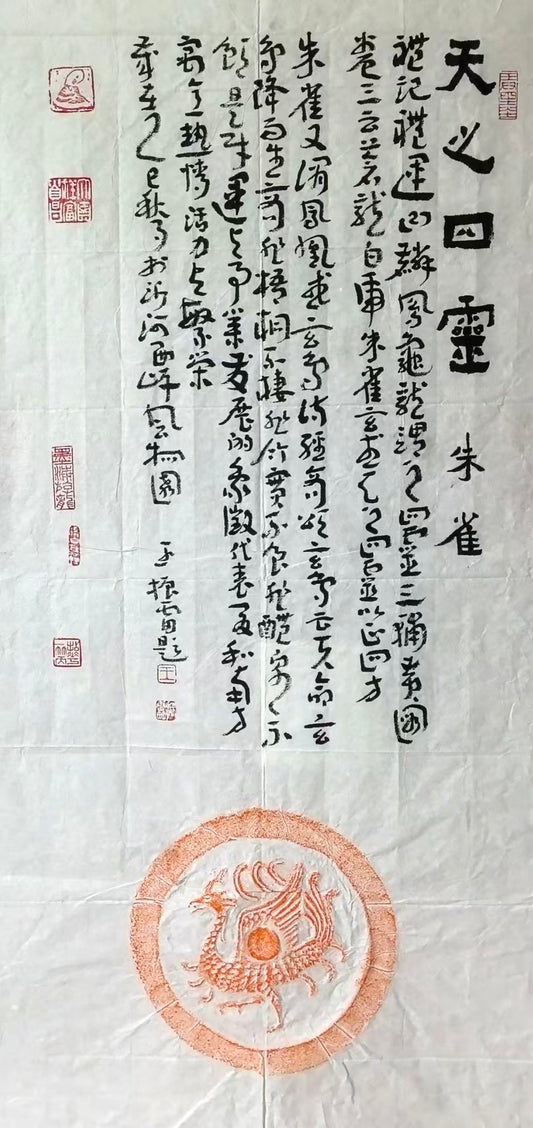 天之四靈
朱雀
禮記禮運曰麟鳳龜龍謂之四靈三輔黃圖
卷三云蒼龍白虎朱雀玄武天之四靈以正四方
朱雀又謂鳳凰或玄鳥詩經商頌玄鳥云天命玄
鳥降而生商非梧桐不棲非竹實不食非醴泉不
飲是時運與事業發展的象徵代表夏和南方
寓意熱情活力與繁榮
歲在乙巳秋月於沂河西岸風物園
王振雷題